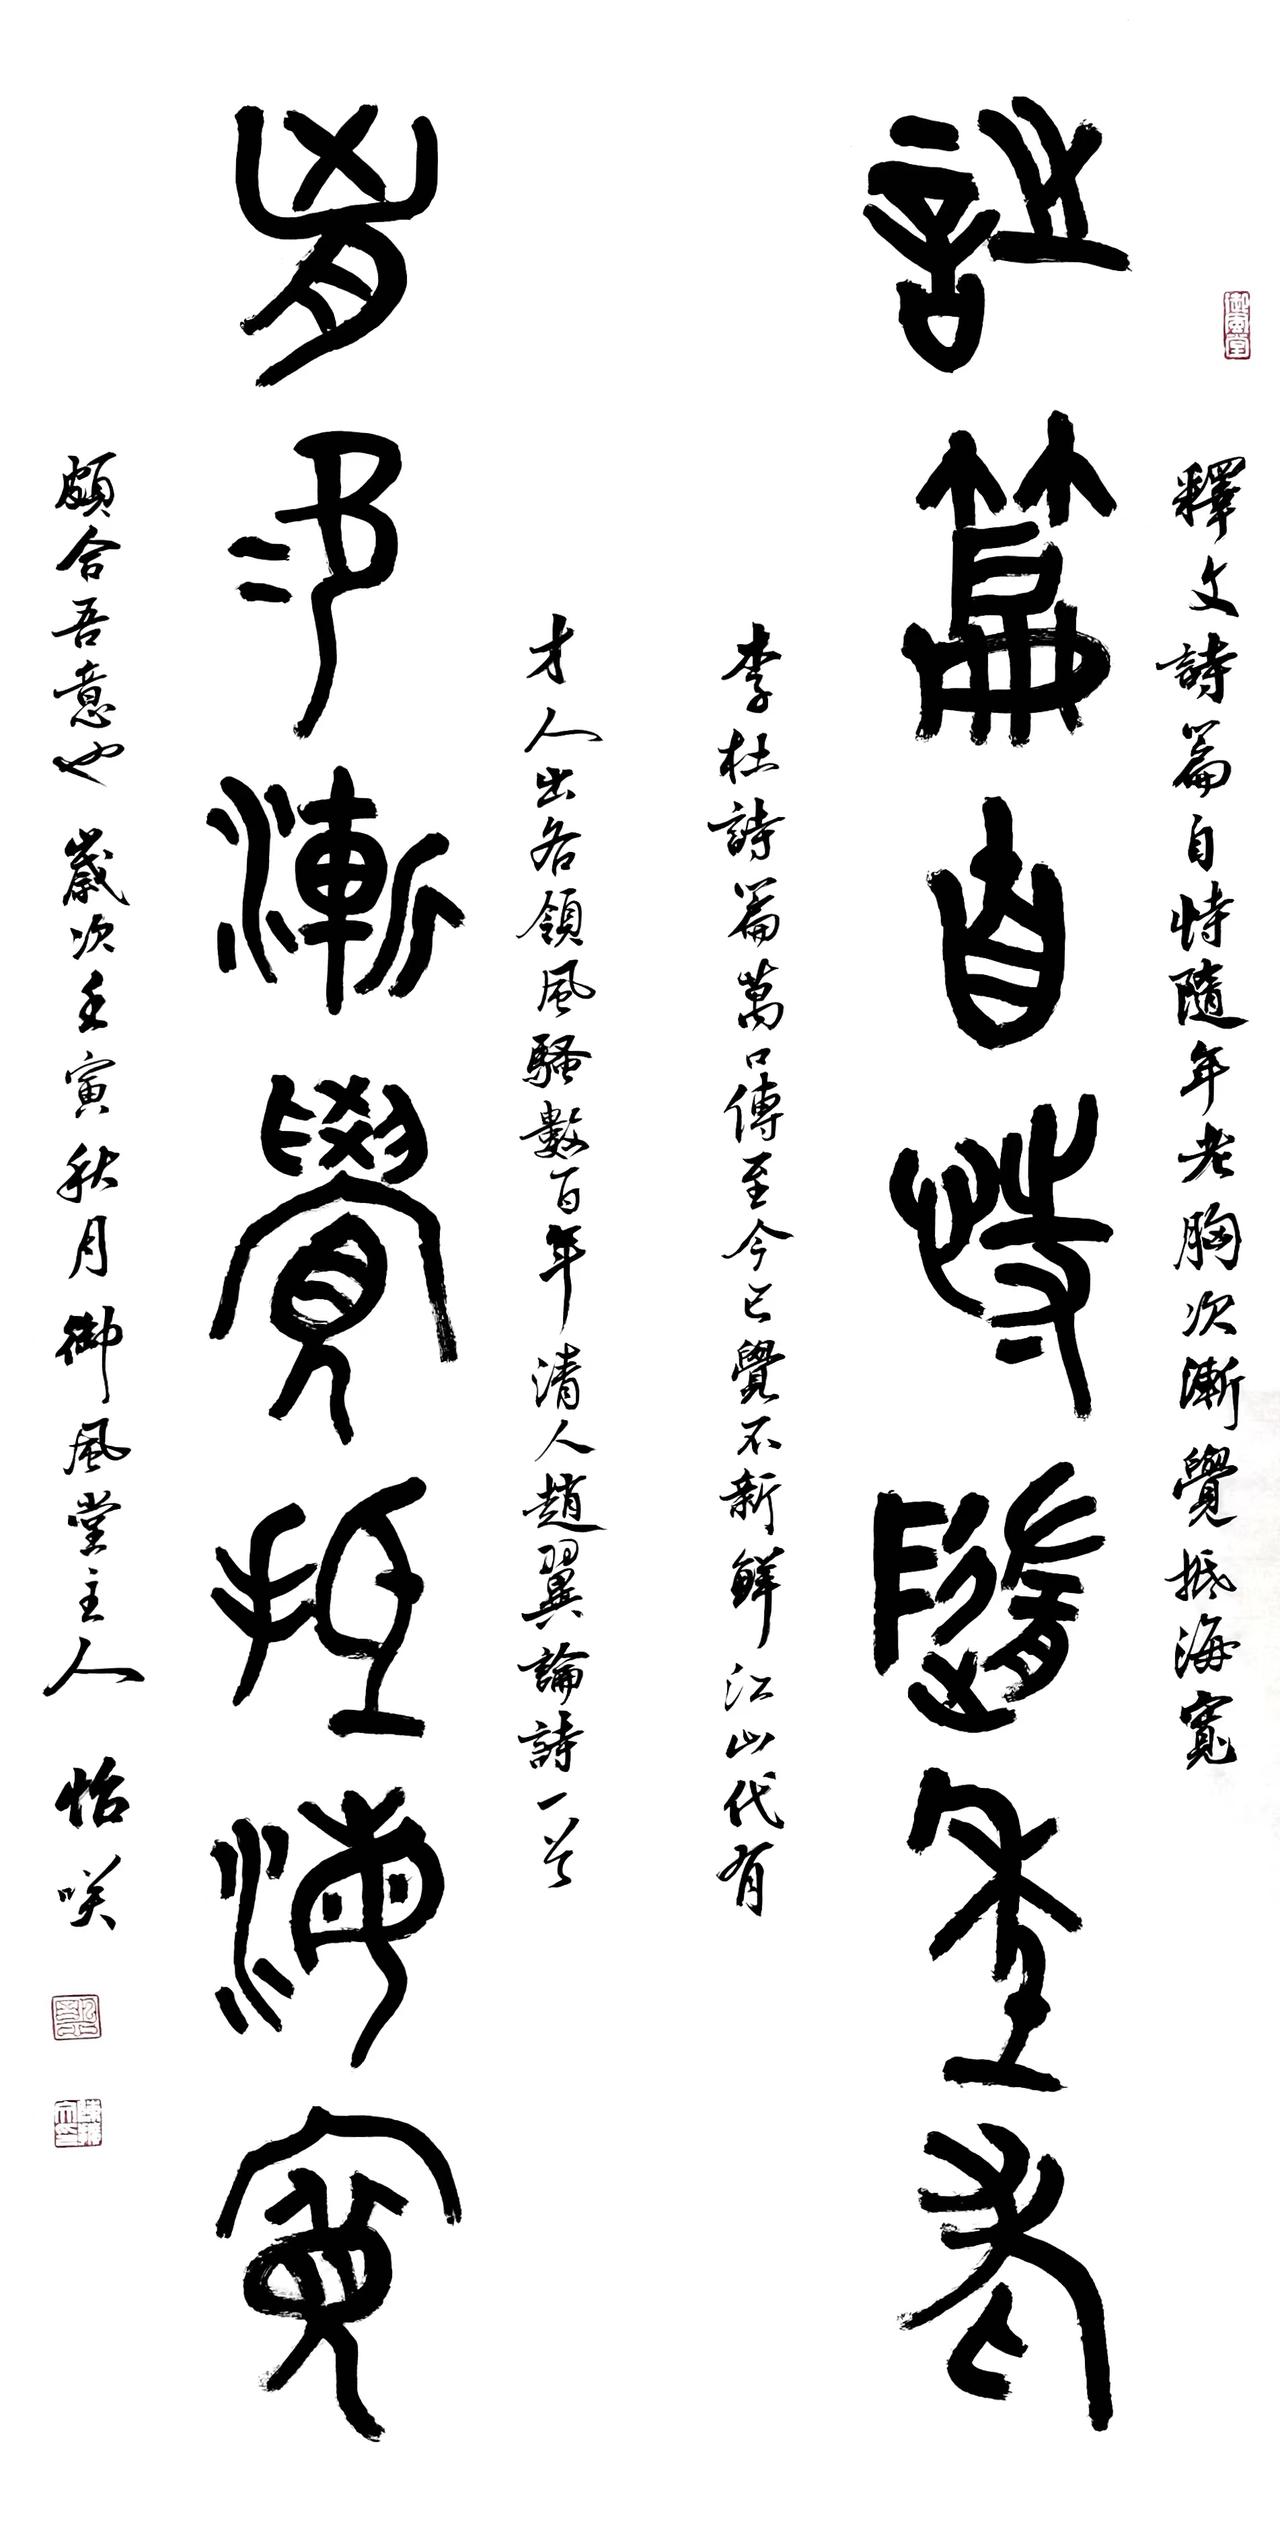 御風堂
釋文詩篇自恃隨年老胸次漸覺抵海寬
詩篇自恃隨年老
李杜詩篇萬口傳至今已覺不新鮮江山代有
才人出各領風騷數百年清人趙翼論詩一首
胸次漸覺抵海寬
頗合吾意也 歲次壬寅秋月御風堂主人 怡咲